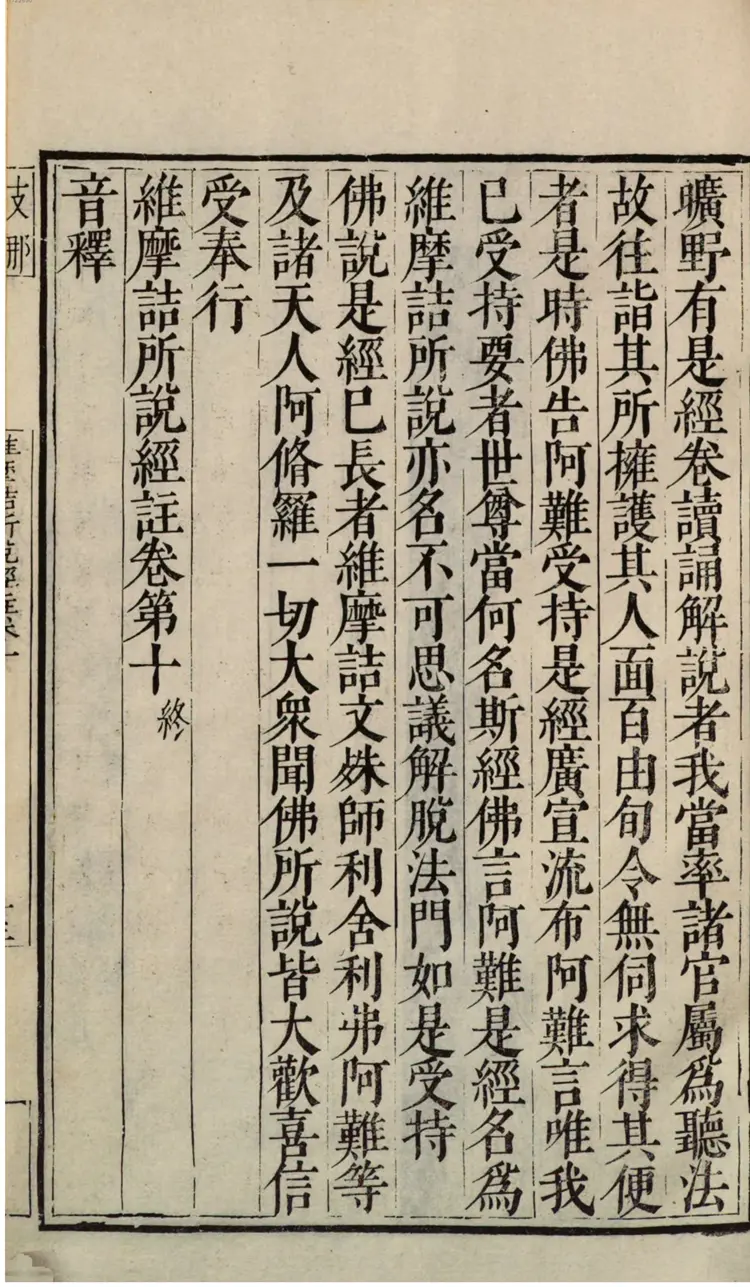 曠野有是經卷讀誦解說者我當率諸官屬為聽法
故往詣其所擁護其人面百由旬令無伺求得其便
者是時佛告阿難受持是經廣宣流布阿難言唯我
已受持要者世尊當何名斯經佛言阿難是經名為
維摩詰所說亦名不可思議解脫法門如是受持
佛說是經已長者維摩詰文殊師利舍利弗阿難等
及諸天人阿脩羅一切大眾聞佛所說皆大歡喜信
受奉行
維摩詰所說經註卷第十 終
音釋
支那